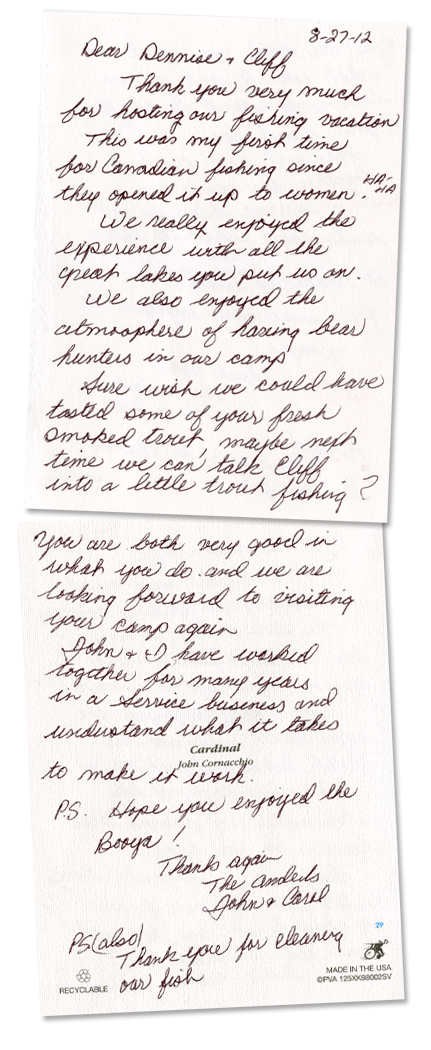 8-27-12
Dear Dennise + Cliff
Thank you very much
for hosting our fishing vacation
This was my first time
for Canadian fishing since
they opened it up to women. HA-HA
We really enjoyed the
experience with all the
great lakes you put us on.
We also enjoyed the
atmosphere of having bear
hunters in our camp
Sure wish we could have
tasted some of your fresh
smoked trout, maybe next
time we can talk Cliff
into a little trout fishing?
You are both very good in
what you do and we are
looking forward to visiting
your camp again
John + I have worked
together for many years
in a service business and
understand what it takes
Cardinal
John Cornacchio
to make it work.
P.S. Hope you enjoyed the
Booya!
Thanks again
The
John & Carol
29
PS(also)
Thank you for cleaning
our fish
RECYCLABLE
MADE IN THE USA
©PVA 125XK98002SV